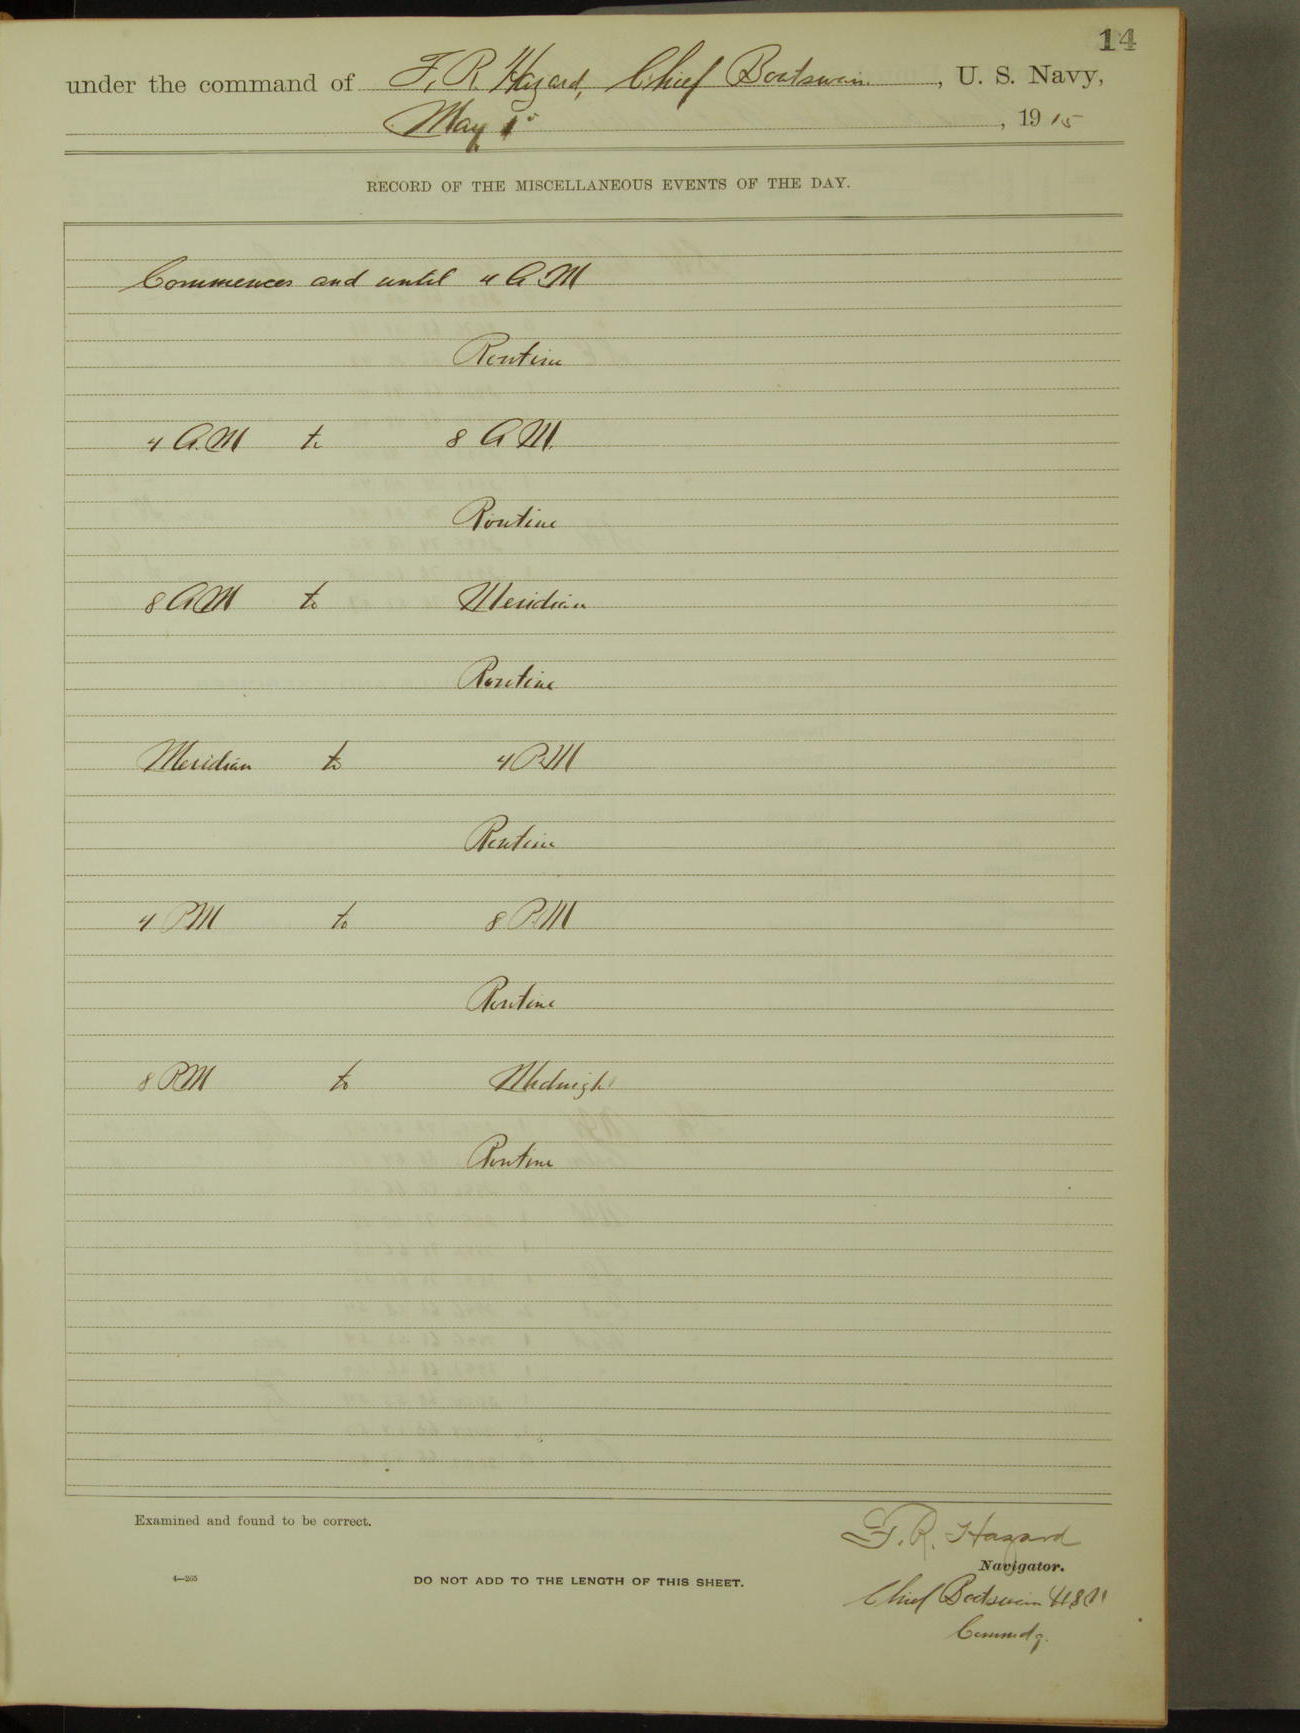 14
under the command of F. R. Hazard, Chief Boatswain, U. S. Navy,
May 1st, 1915
RECORD OF THE MISCELLANEOUS EVENTS OF THE DAY.
Commences and until 4 A.M
Routine
4 A.M to 8 A.M.
Routine
8 A.M to Meridian
Routine
Meridian to 4 P.M
Routine
4 P.M to 8 P.M
Routine
8 P.M to Midnight
Routine
Examined and found to be correct.
F. R. Hazard
Navigator.
4—265
DO NOT ADD TO THE LENGTH OF THIS SHEET.
Chief Boatswain U.S.N
Commdg.